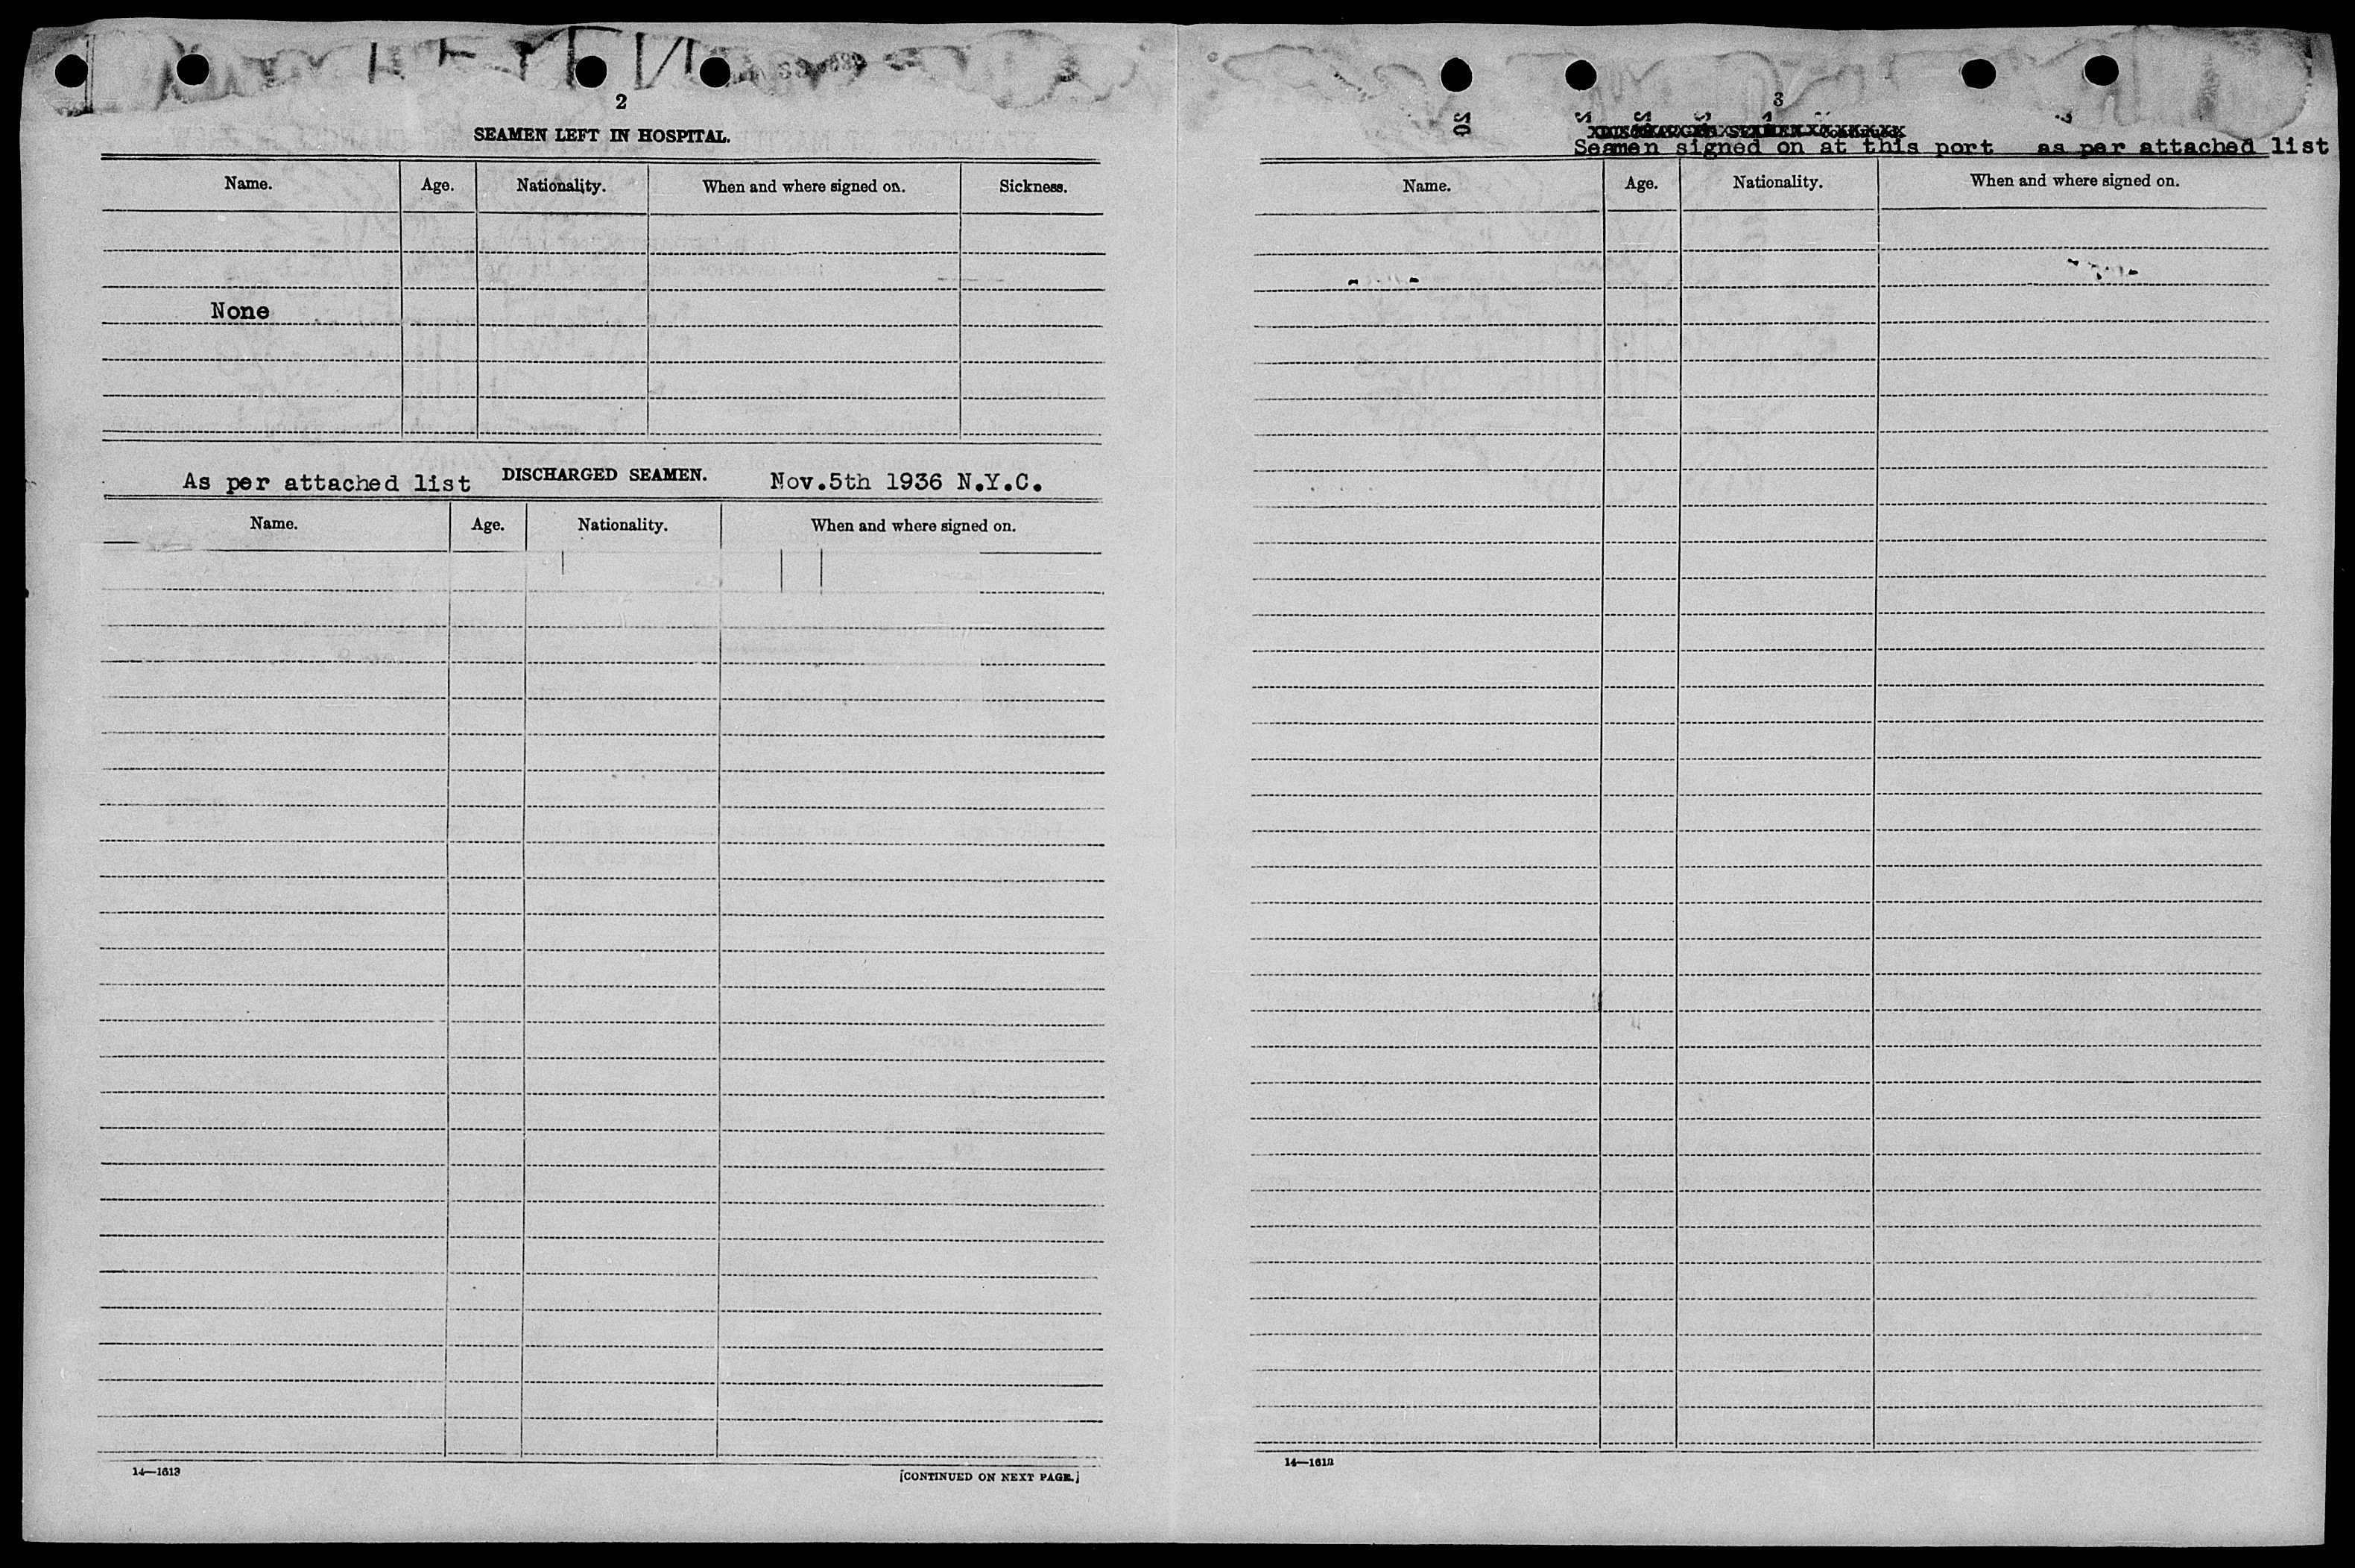 2
SEAMEN LEFT IN HOSPITAL.
Name. Age. Nationality. When and where signed on. Sickness.
None
As per attached list DISCHARGED SEAMEN. Nov.5th 1936 N.Y.C.
Name. Age. Nationality. When and where signed on.
14—1613
[CONTINUED ON NEXT PAGE.]
3
DISCHARGED SEAMEN
Seamen signed on at this port as per attached list
Name. Age. Nationality. When and where signed on.
14—1613